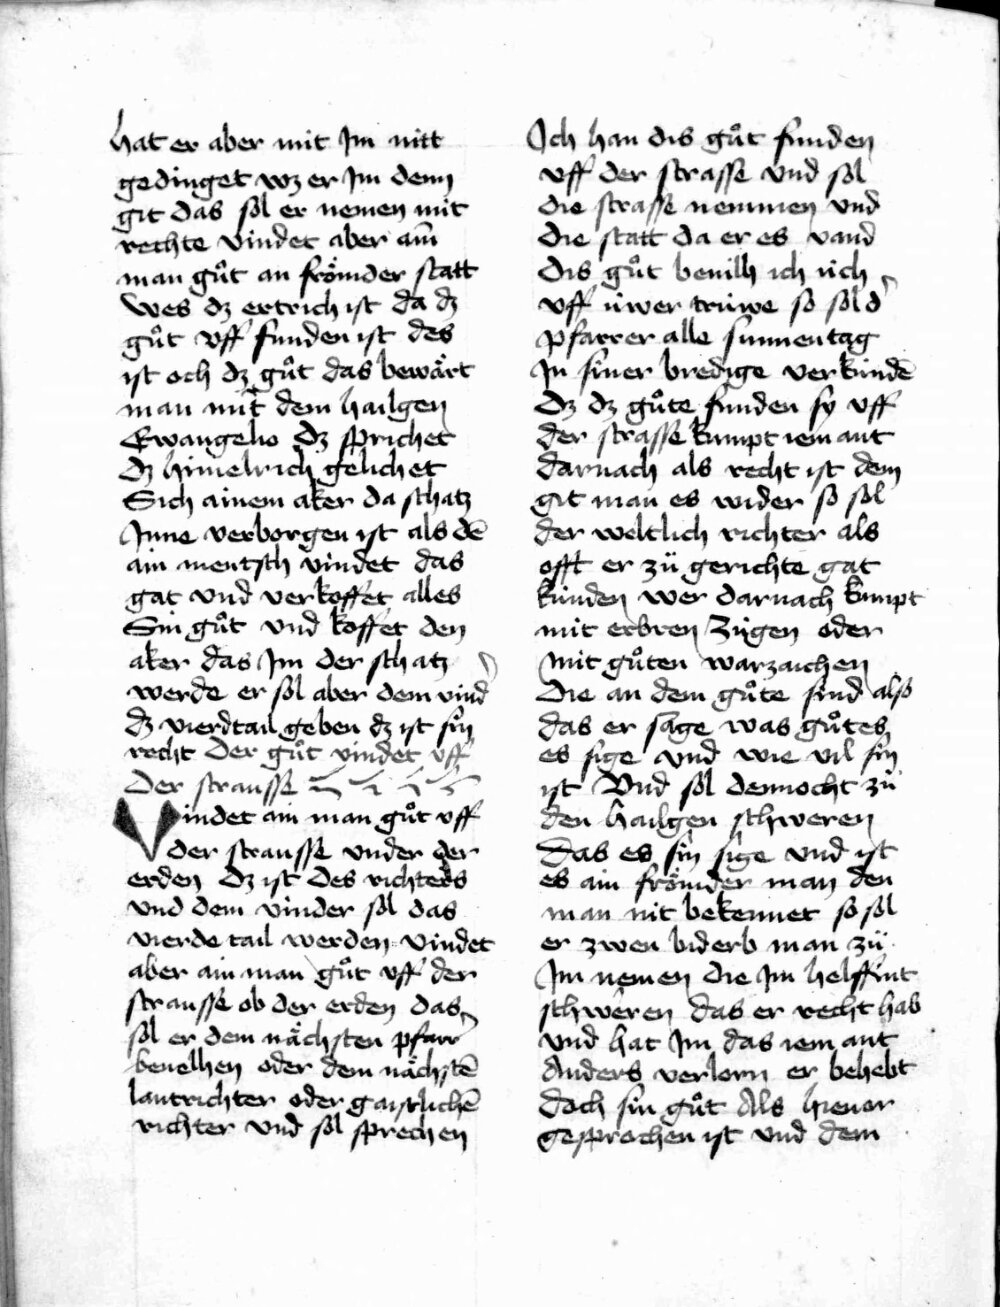 hat er aber mit Jm nitt
gedinget wz er Jm denn
git das sol er nemen mit
rechte vindet aber ain̄
man gůt an frömder statt
wes dz ertrich ist da dz
gůt vff funden ist des
ist och dz gůt das bewärt
man mit dem hailgen
Ewangelio dz sprichet
dz himelrich gelichet
Sich ainem aker da schatz
Jnne verborgen ist als dē
ain mentsch vindet das
gat vnd verkoffet alles
Sin gůt vnd koffet den
aker das Jm der schatz
werde er sol aber dem vind᾿
dz vierdtail geben dz ist sin
recht Der gůt vindet vff
der strausse
Vindet ain man gůt vff
der strausse vnder der
erden dz ist des richters
vnd dem vinder sol das
vierde tail werden vindet
aber ain man gůt vff der
strausse ob der erden das
sol er dem nächsten pfarr᾿
beuelhen oder dem nächstē
lantrichter oder gaistlichē
richter vnd sol sprechen
Jch han dis gůt funden
vff der strasse vnd sol
die strasse nemmen vnd
die statt da er es vand
dis gůt beuilh ich üch
vff üwer trüwe so sol d᾿
pfarrer alle sunnentag
Jn siner bredige verkündē
dz dz gůte funden sy vff
der strasse kumpt iemant
darnach als recht ist dem
git man es wider so sol
der weltlich richter als
offt er zü gerichte gat
künden wer darnach kumpt
mit erbren zügen oder
mit gůten warzaichen
die an dem gůte sind also
das er sage was gůtes
es sige vnd wie vil sin
ist Vnd sol dennocht zü
den hailgen schweren
das es sin sige vnd ist
es ain frömder man den
man nit bekennet so sol
er zwen biderb man zü
Jm nemen die Jm helffint
schweren das er recht hab
vnd hat Jm das iemant
Anders verlorn er behebt
doch sin gůt Als hieuor
gesprochen ist vnd dem